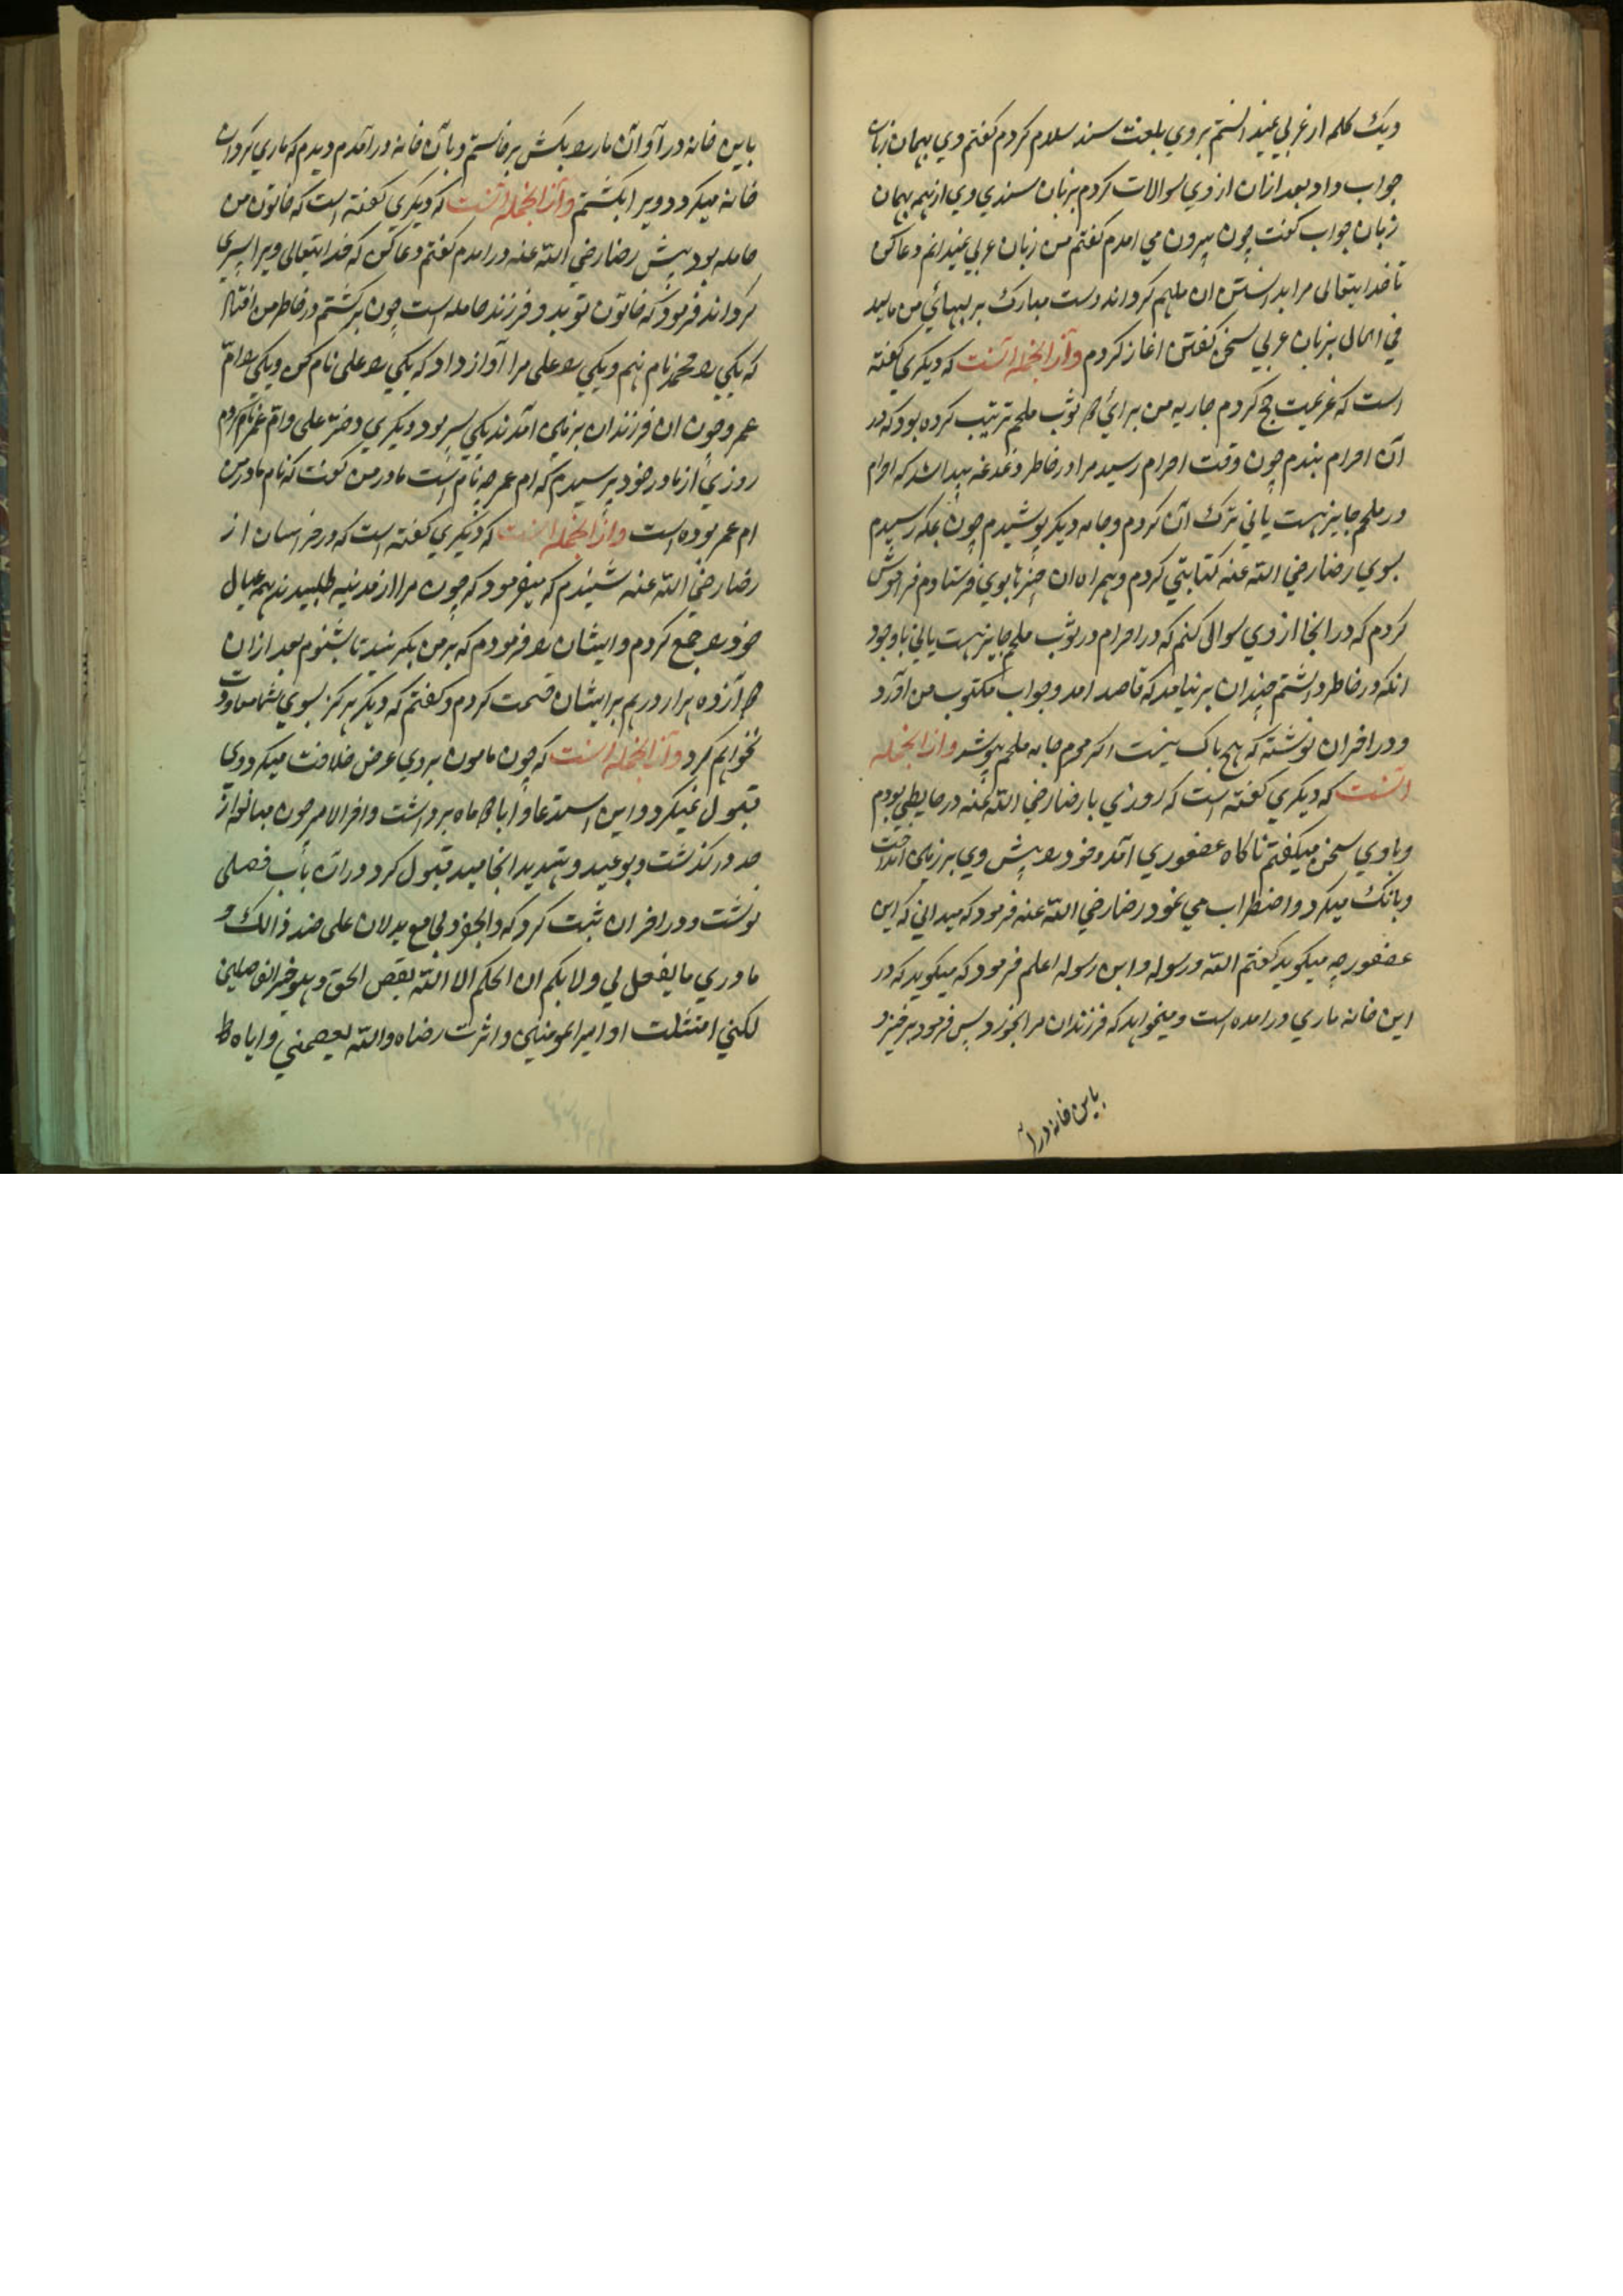 ویک کلمه از عربی نمیدانستم بر وی بلغت سند سلام کردم کفتم وی بهمان زبان
جواب داد بعد ازان از وی سوالات کردم بزبان سندی وی از همه بهمان
زبان جواب کفت چون بیرون می امدم کفتم من زبان عربی نمیدانم دعا کن
تا خدایتعالی مرا بدانستن ان ملهم کرداند دست مبارک بر لبهای من مالید
فی الحال بزبان عربی سخن کفتن اغاز کردم وازانجمله انست که دیکری کفته
است که عزیمت حج کردم جاریه من برای من ثوب ملحم ترتیب کرده بود که در
آن احرام بندم چون وقت احرام رسید مرا در خاطر دغدغه پیدا شد که احرام
در ملحم جایز هست یا نی ترک آن کردم وجامه دیکر پوشیدم چون بمکه رسیدم
بسوی رضا رضی الله عنه کتابتی کردم وهمراه ان چیزها بوی فرستادم فراموش
کردم که در انجا از وی سوالی کنم که در احرام در ثوب ملحم جایز هست یا نی با وجود
انکه در خاطر داشتم چندان بر نیامد که قاصد امد وجواب مکتوب من اورد
ودر اخر ان نوشته که هیچ باک نیست اکر محرم جامه ملحم پوشد وازانجمله
انست که دیکری کفته است که روزی با رضا رضی الله عنه در حایطی بودم
وباوی سخن میکفتم ناکاه عصفوری آمد وخود را پیش وی بر زمین انداخت
وبانک میکرد واضطراب می نمود رضا رضی الله عنه فرمود که میدانی که این
عصفور چه میکوید کفتم الله ورسوله وابن رسوله اعلم فرمود که میکوید که در
این خانه ماری در امده است ومیخواهد که فرزندان مرا بخورد پس فرمود برخیز و
باین خانه در ا
باین خانه در آ و آن مار را بکش برخاستم وبآن خانه در آمدم دیدم که ماری کرد ان
خانه میکردد ویرا بکشتم وازانجمله انست که دیکری کفته است که خاتون من
حامله بود پیش رضا رضی الله عنه در امدم کفتم دعا کن که خدایتعالی ویرا پسری
کرداند فرمود که خاتون تو بدو فرزند حامله است چون برکشتم در خاطر من افتاد
که یکی را محمد نام نهم ویکی را علی مرا آواز داد که یکی را علی نام کن ویکی را ام
عمر وچون ان فرزندان بزمین آمدند یکی پسر بود ودیکری دختر علی وام عمر نام کردم
روزی از مادر خود پرسیدم که ام عمر چه نام است مادر من کفت که نام مادر من
ام عمر بوده است وازانجمله انست که دیکری کفته است که در خراسان از
رضا رضی الله عنه شنیدم که میفرمود که چون مرا از مدینه طلبیدند همه عیال
خود را جمع کردم وایشان را فرمودم که بر من بکریند تا بشنوم بعد ازان
دوازده هزار درهم بر ایشان قسمت کردم وکفتم که دیکر هرکز بسوی شما معاودت
نخواهم کرد وازانجمله انست که چون مامون بر وی عرض خلافت میکرد وی
قبول نمیکرد واین استدعا وابا دو ماه برداشت واخر الامر چون مبالغه از
حد در کذشت وبوعید وتهدید انجامید قبول کرد ودران باب فصلی
نوشت ودر اخر ان ثبت کرد که والجفر والجامع یدلان علی ضد ذالک و
ما دری ما یفعل لی ولا بکم ان الحکم الا الله یقص الحق وهو خیر الفاصلین
لکنی امتثلت او امیر المومنین واثرت رضاه والله یعصمنی وایاه ط